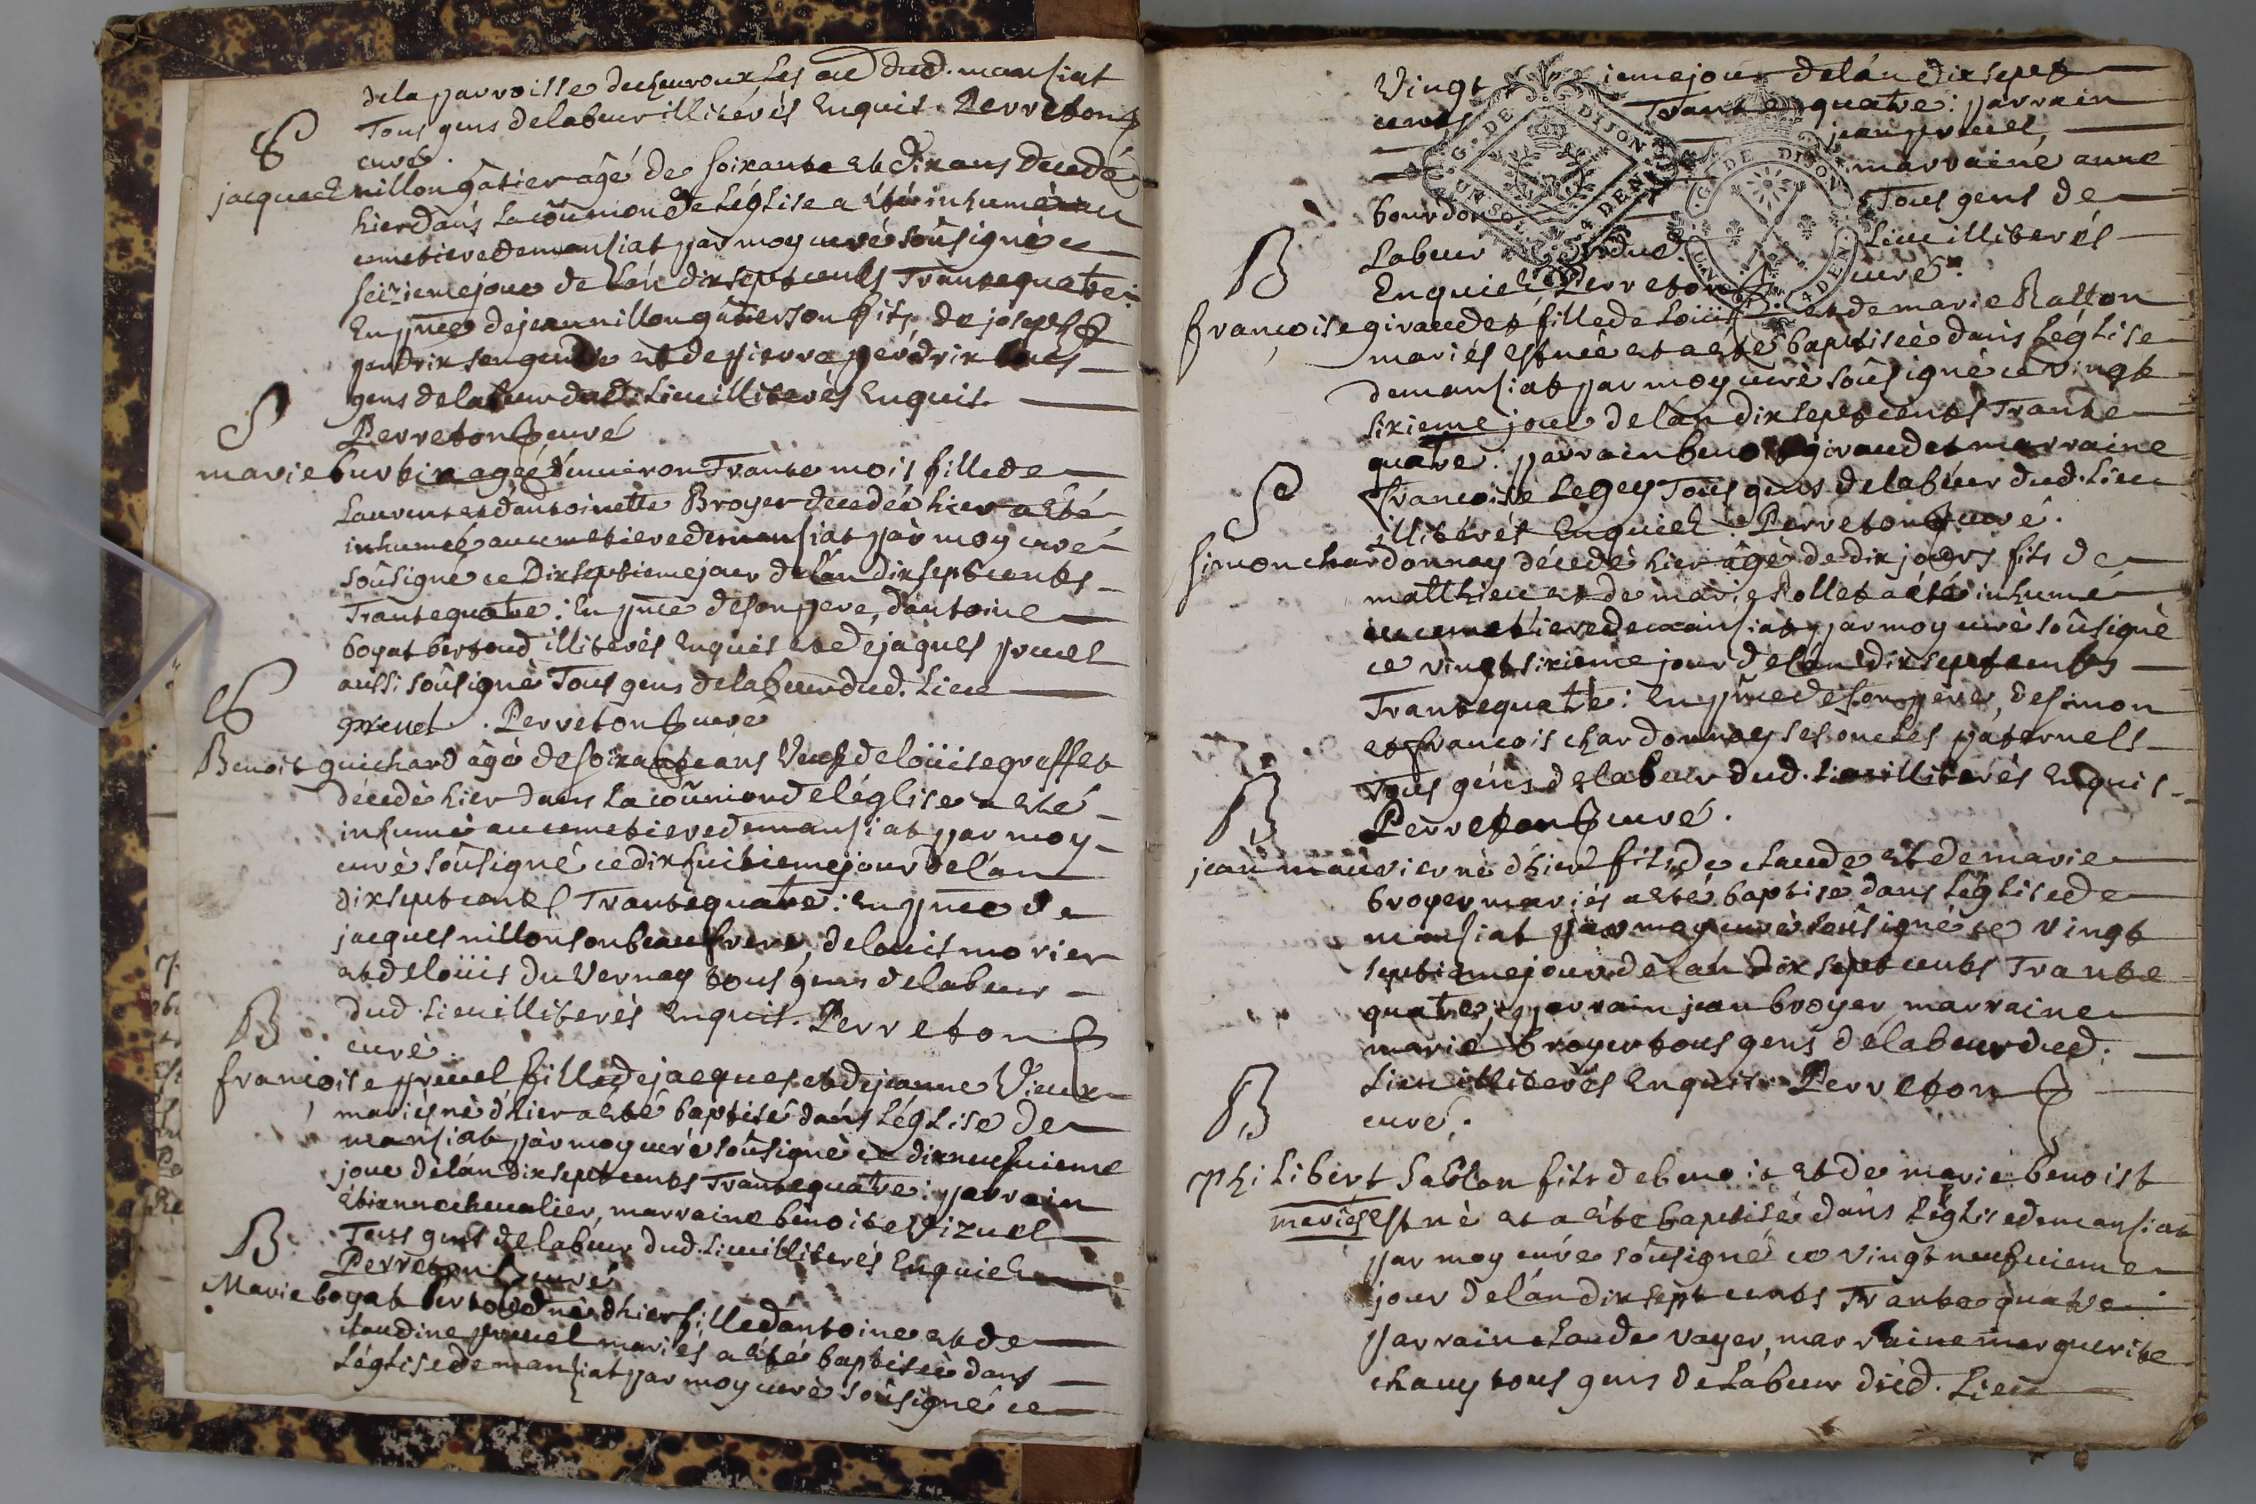 dela parroisse dechevroux, les au dud. mansiat
Tous gens delabeur illiterés Enquis. Perreton
curé.
S
jacques nillon gatier âgé de soixante et dix ans decedé
hier dans la coûmion de Léglise a été inhumé au
cemetiere demansiat par moy curé soûsigné ce
seizieme jour de Lán dix sept cents Trante quatre:
En pnce de jean nillon gatier son fils, de joseph
perdrix son gendre et de pierre perdrix tous
gens delabeur dud. Lieu illiterés Enquis.
Perreton curé
S
marie burtin agée d'environ Trante mois fille de
Laurent et dantoinette Broyer decedée hier a eté
inhumée au cemetiere de mansiat par moy curé
soûsigné ce Dix septieme jour de lán dix sept cents
Trante quatre: En pnce de son pere, dantoine
boyat bertoud illiterés Enquis et de jaques pruel
aussi soûsigné Tous gens de labeur dud. Lieu
pruel. Perreton curé
S
Benoit guichard âgé de soixante ans Veuf de loüise greffet
décedé hier dans La coûmion de léglise a eté
inhumé au cemetiere de mansiat par moy
curé soûsigné ce dix huitieme jour de lán
dix sept cents Trante quatre: En pnce de
jacques nillon son beaufrere, de louis morier
et de loüis du Vernay tous gens de labeur
dud. Lieu illiterés Enquis. Perreton
curé.
B
francoise pruel fille de jacques et de jeanne Vieux
mariés né d'hier a eté baptisé dans Léglise de
mansiat par moy curé soûsigné ce dix neufvieme
jour de lán dix sept cents Trante quatre: parrain
Etienne chevalier, marraine benoite Vizuel
Tous gens de labeur dud. Lieu illiterés Enquich
Perreton curé
B
Marie boyat bertoud né d'hier fille dantoine et de
claudine pruel mariés a eté baptisée dans
Léglise de mansiat par moy curé soûsigné ce
Vingt ieme jour de lán dix sept
cents Trante quatre: parrain
jean pruel,
marraine anne
bourdon Tous gens de
Labeur dud. Lieu illiterés
Enquich Perreton curé.
G. DE DIJON
UN SOL 4 DEN.
G. DE DIJON
UN 4 DEN.
B
françoise giraudet fille de Loüis et de marie Ratton
mariés est née et a eté baptisée dans Léglise
de mansiat par moy curé soûsigné ce vingt
sixieme jour de lán dix sept cents Trante
quatre: parrain benoit giraudet marraine
francoise Legey Tous gens de labeur dud. Lieu
illiterés Enquich. Perreton curé.
S
simon chardonnay décedé hier âgé de dix jours fils de
matthieu et de marie Rollet a été inhumé
au cemetiere de mansiat par moy curé soûsigné
ce vingt sixieme jour de lán dix sept cents
Trante quatre: En pnce de son pere, de simon
et francois chardonnay ses oncles paternels
Tous gens de labeur dud. Lieu illiterés Enquis.
Perreton curé.
B
jean mauvier né d'hier fils de claude et de marie
broyer mariés a eté baptisé dans Léglise de
mansiat par moy curé soûsigné ce vingt
septieme jour de lán dix sept cents Trante
quatre; parrain jean broyer, marraine
marie broyer tous gens de labeur dud.
Lieu illiterés Enquis. Perreton
curé.
B
Philibert Sablon fils de benoit et de marie benoist
mariés est né et a eté baptisé dans Léglise de mansiat
par moy curé soûsigné ce vingt neufvieme
jour de lán dix sept cents Trante quatre:
parrain claude vayer, marraine marguerite
chauy tous gens de Labeur dud. Lieu